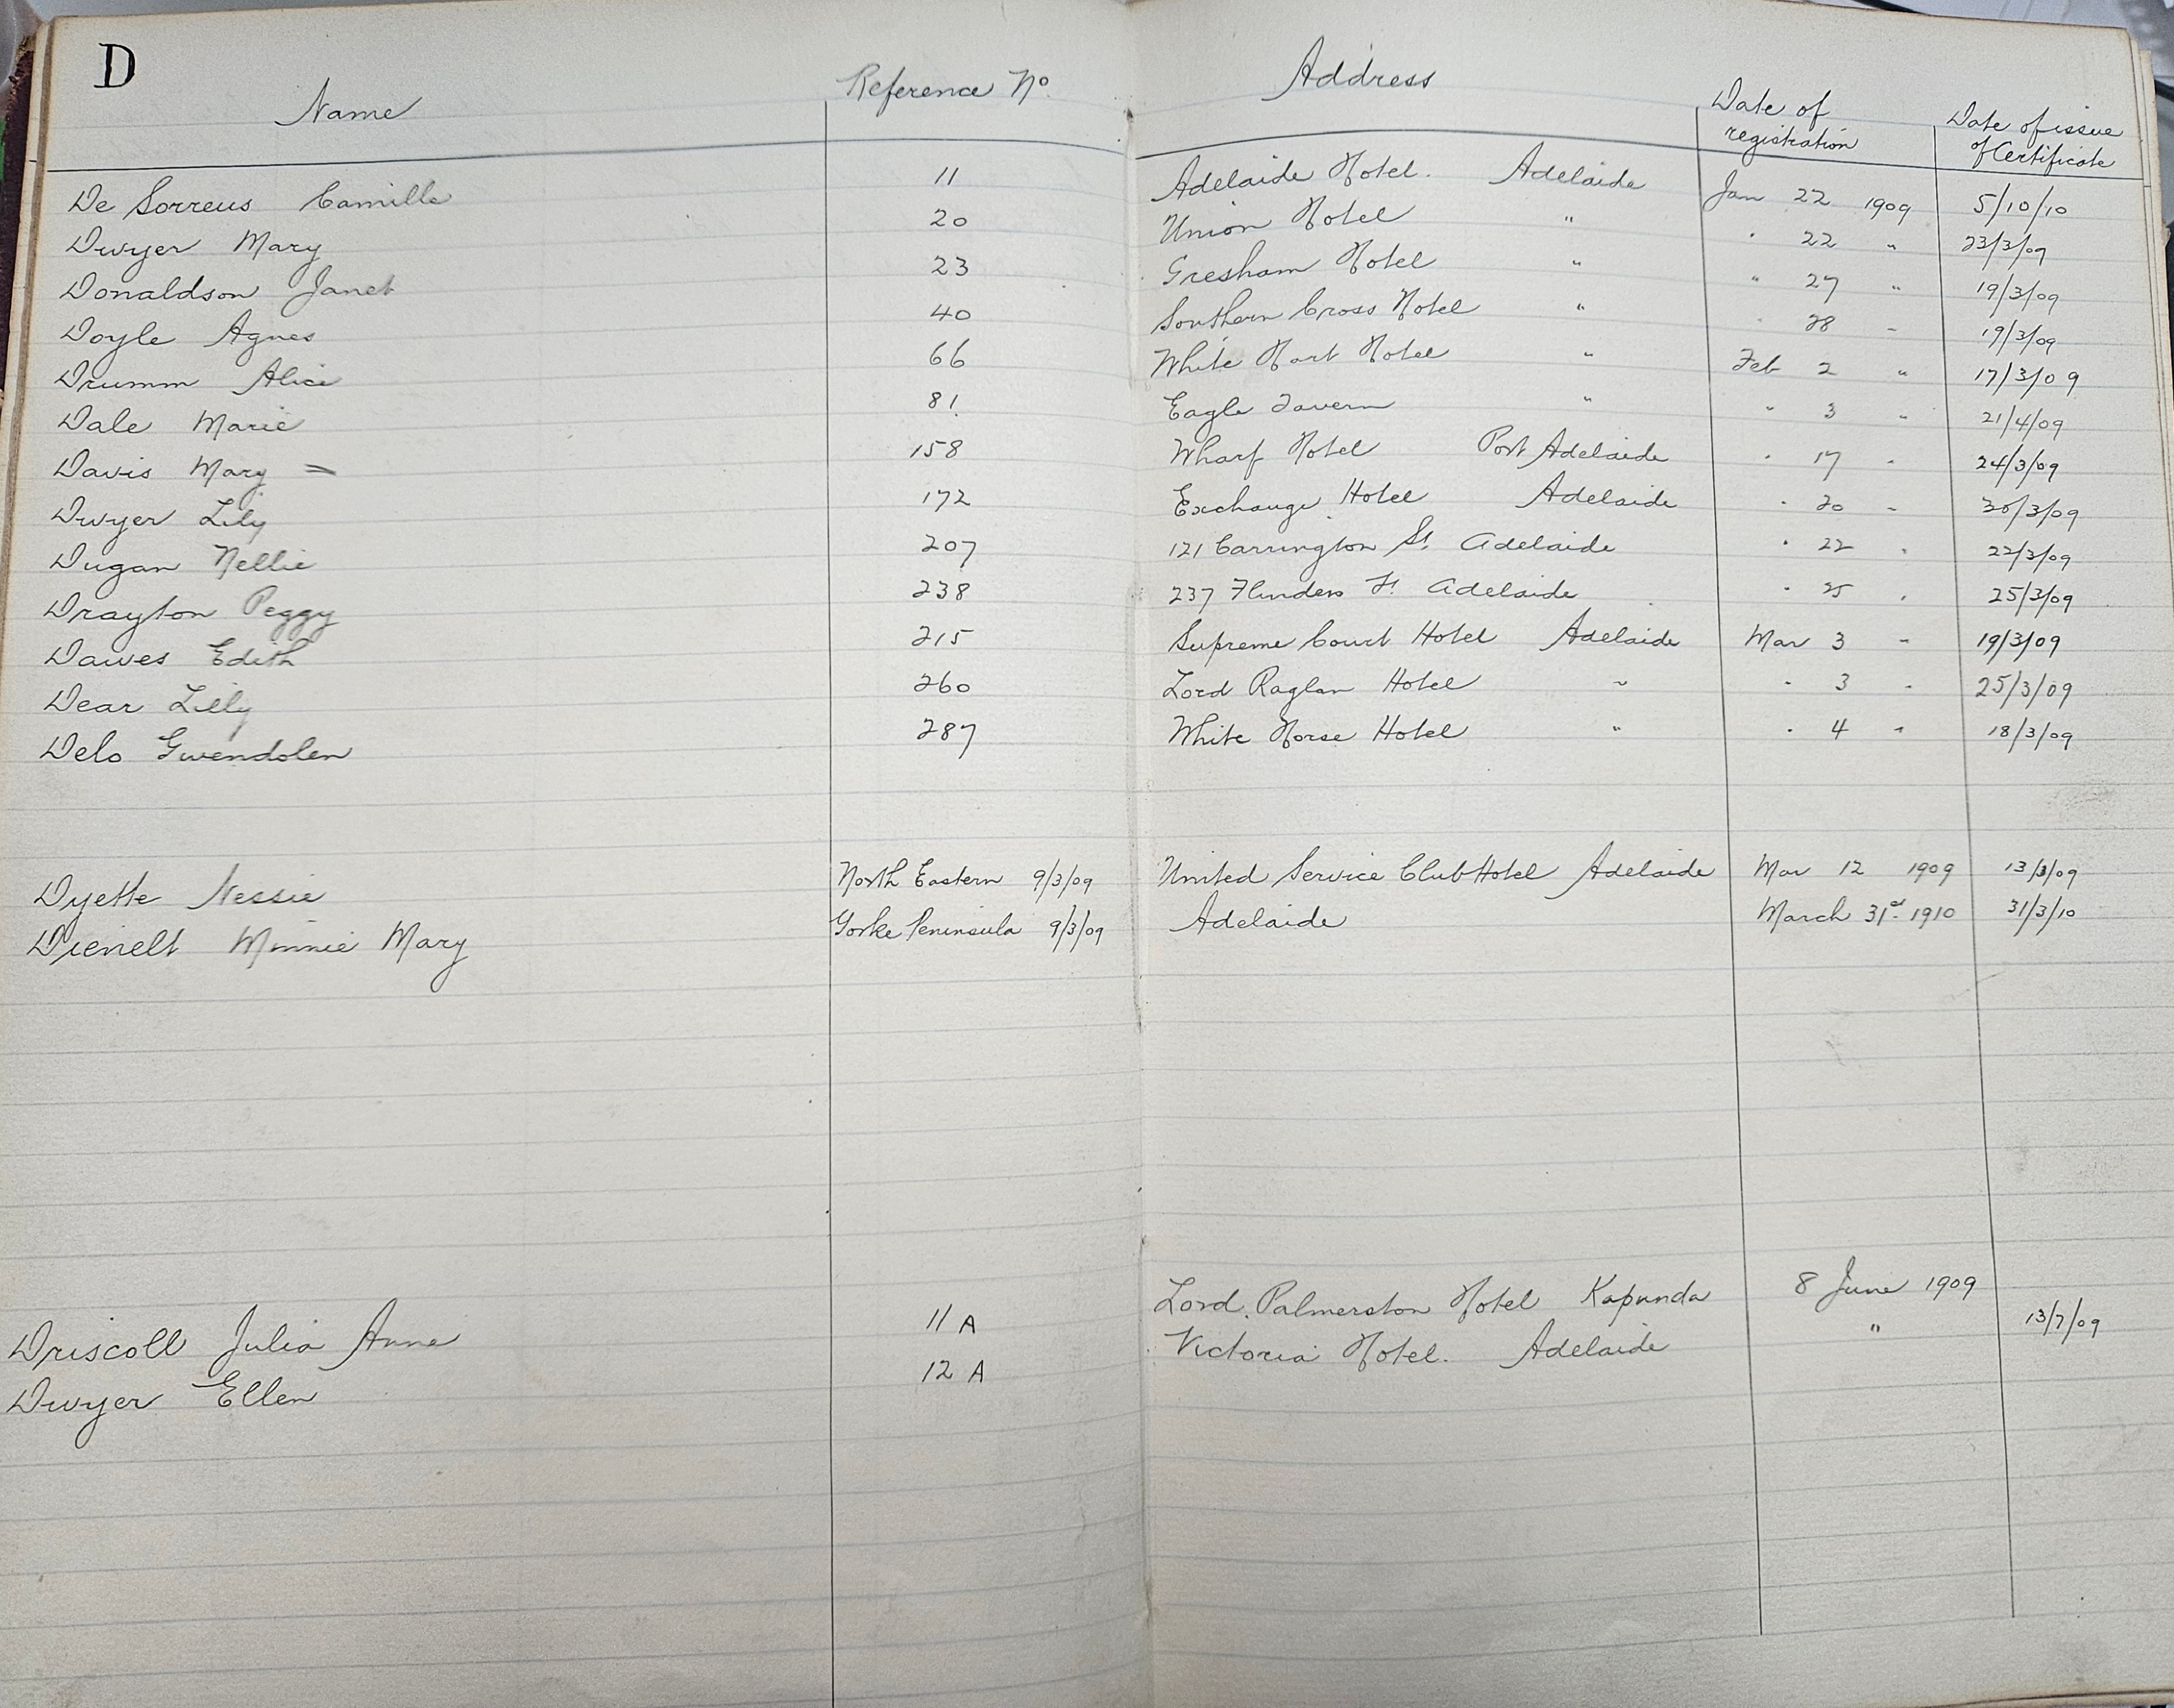 D
Name Reference No Address Date of registration Date of issue of Certificate
De Sorreus Camille 11 Adelaide Hotel. Adelaide Jan 22 1909 5/10/10
Dwyer Mary 20 Union Hotel " " 22 " 23/3/09
Donaldson Janet 23 Gresham Hotel " " 27 " 19/3/09
Doyle Agnes 40 Southern Cross Hotel " " 28 " 19/3/09
Drumm Alice 66 White Hart Hotel " Feb 2 " 17/3/09
Dale Marie 81 Eagle Tavern " " 3 " 21/4/09
Davis Mary = 158 Wharf Hotel Port Adelaide " 17 " 24/3/09
Dwyer Lily 172 Exchange Hotel Adelaide " 20 " /3/09
Dugan Nellie 207 121 Carrington St. Adelaide " 22 " 22/3/09
Drayton Peggy 238 237 Flinders St. Adelaide " 25 " 25/3/09
Dawes Edith 215 Supreme Court Hotel Adelaide Mar 3 " 19/3/09
Dear Lily 260 Lord Raglan Hotel " " 3 " 25/3/09
Delo Gwendolen 287 White Horse Hotel " " 4 " 18/3/09
Dyette Nessie North Eastern 9/3/09 United Service Club Hotel Adelaide Mar 12 1909 13/3/09
Dienelt Minnie Mary Yorke Peninsula 9/3/09 Adelaide March 31st 1910 31/3/10
Driscoll Julia Anne 11 A Lord Palmerston Hotel Kapunda 8 June 1909
Dwyer Ellen 12 A Victoria Hotel. Adelaide " 13/7/09